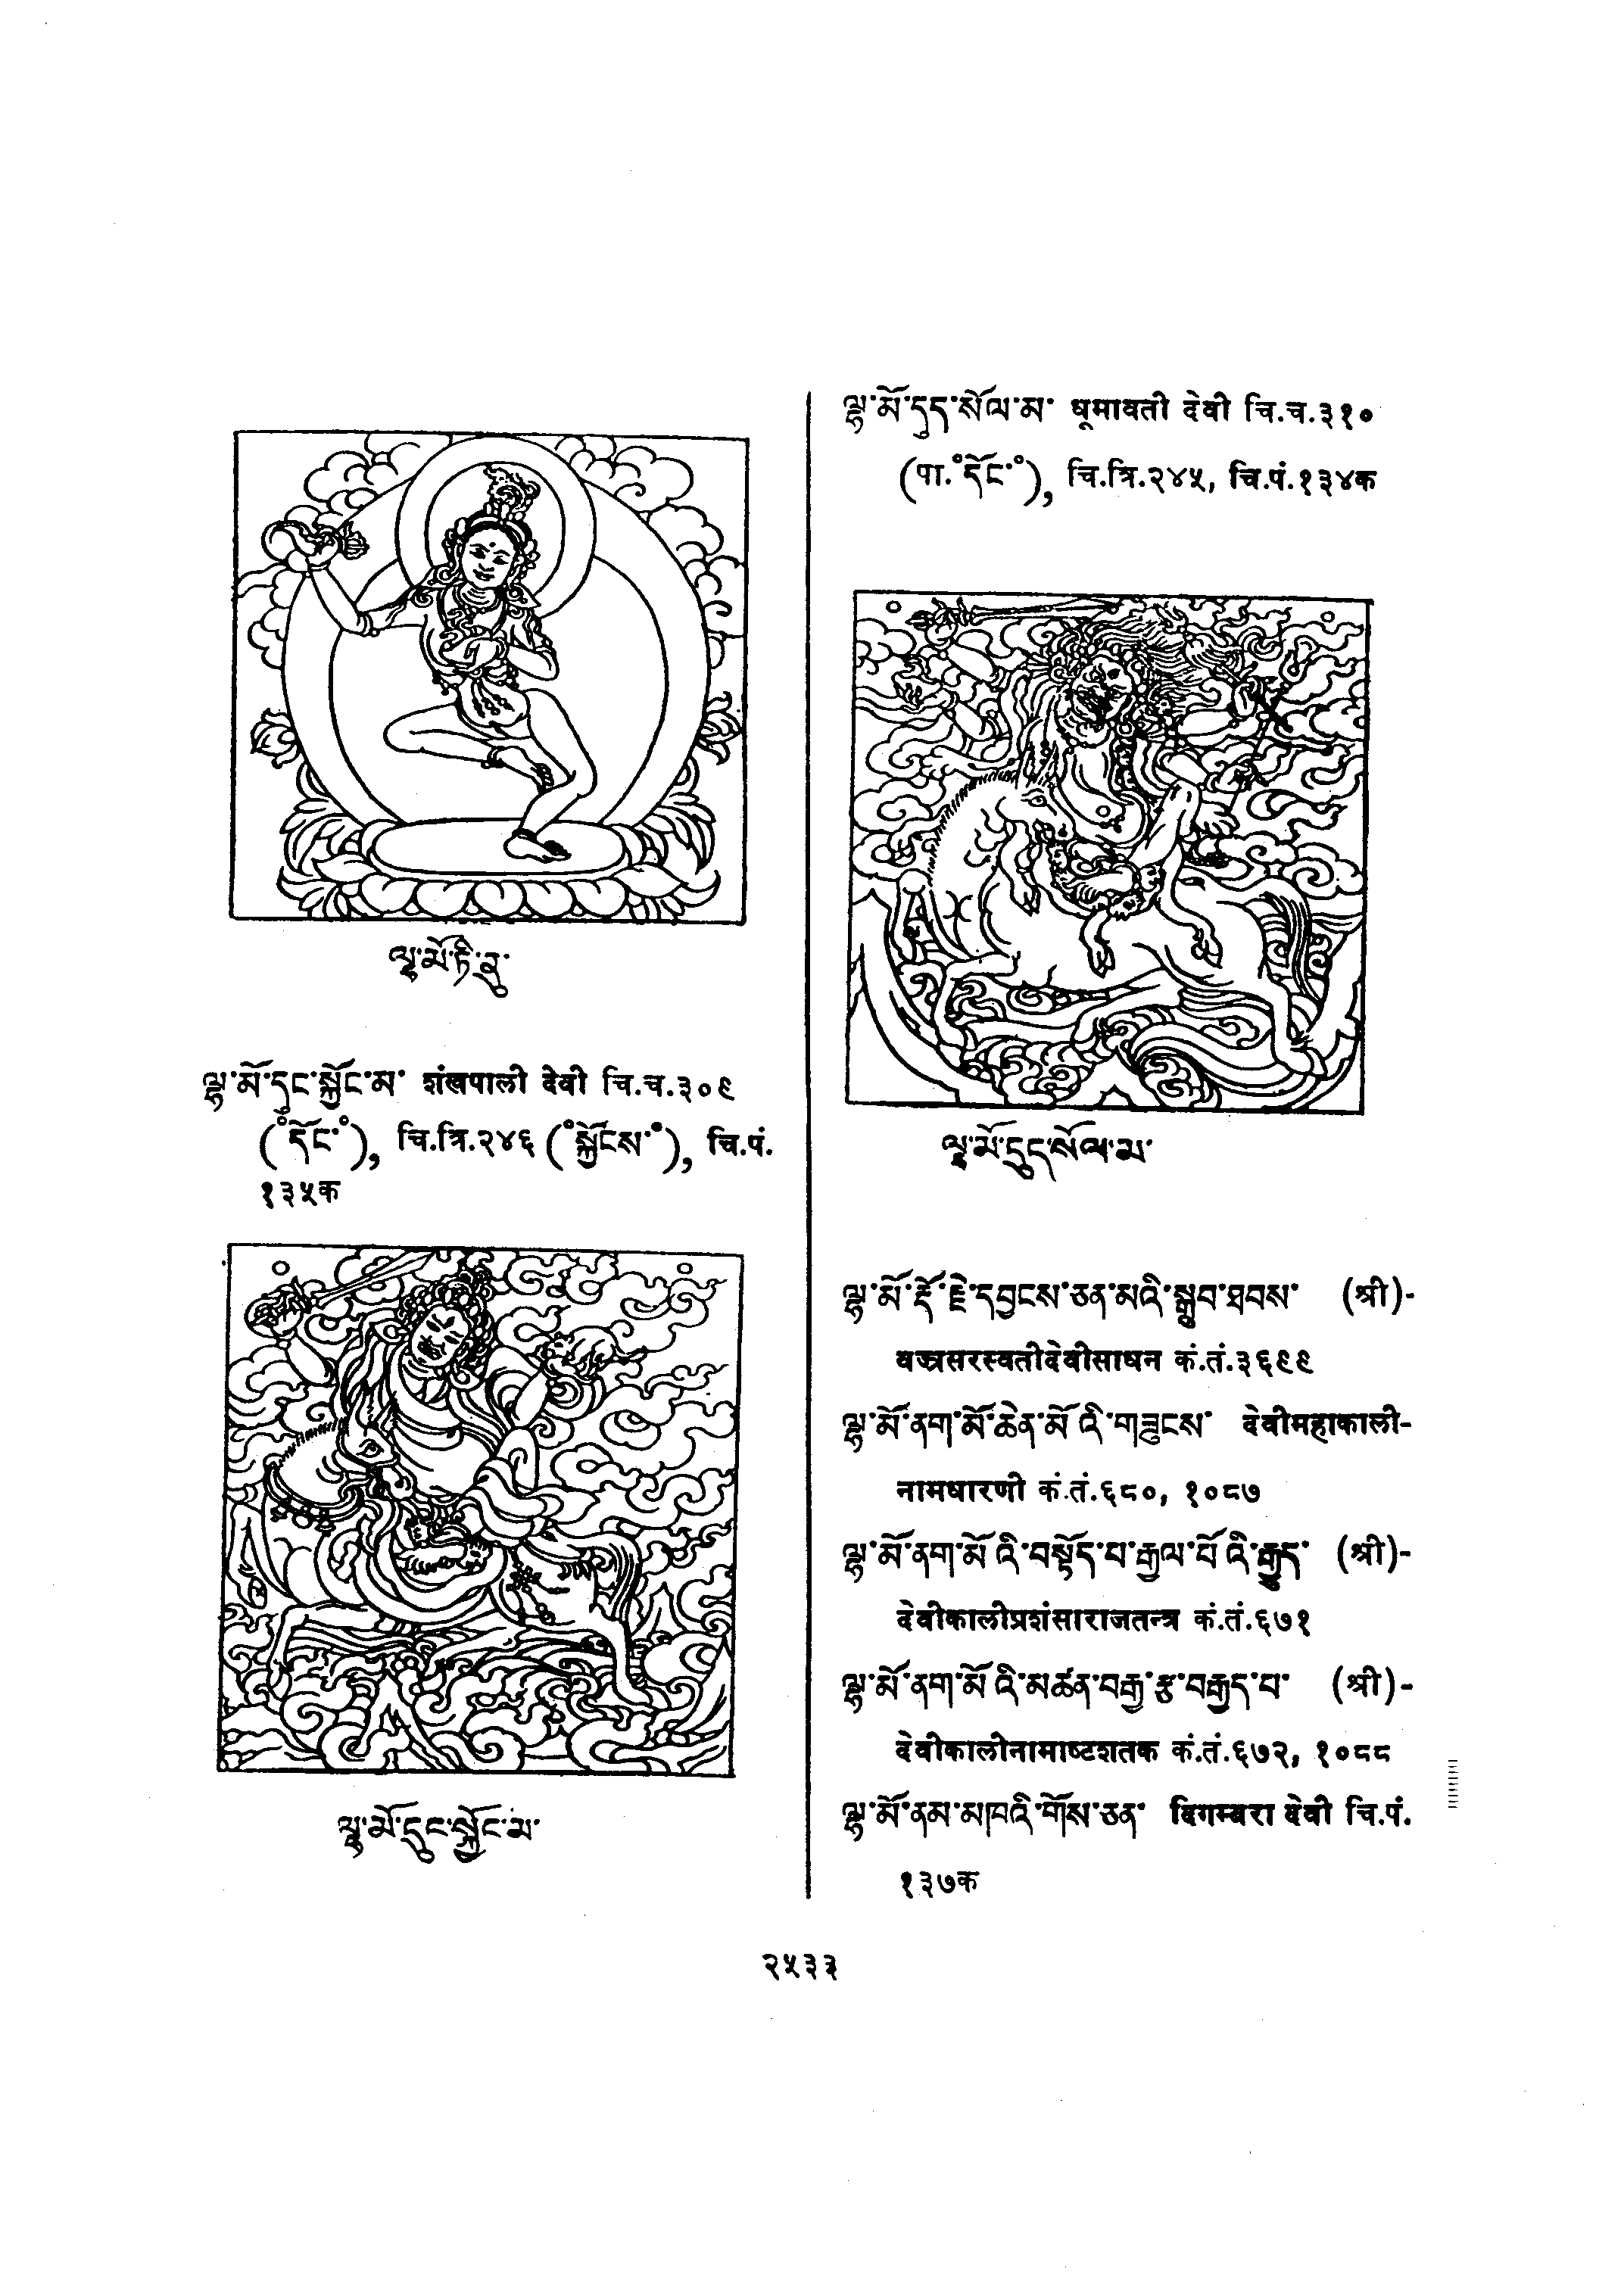 ལྷ་མོ་ཏི་རུ་
ལྷ་མོ་དུང་སྐྱོང་མ་ शंखपाली देवी चि.च.३०९
(°དོང་°), चि.त्रि.२४६ (°སྐྱོངས་°), चि.पं.
१३५क
ལྷ་མོ་དུང་སྐྱོང་མ་
ལྷ་མོ་དུད་སོལ་མ་ धूमावती देवी चि.च.३१०
(पा.°དོང་°), चि.त्रि.२४५, चि.पं.१३४क
ལྷ་མོ་དུད་སོལ་མ་
ལྷ་མོ་རྡོ་རྗེ་དབྱངས་ཅན་མའི་སྒྲུབ་ཐབས་ (श्री)-
वज्रसरस्वतीदेवीसाधन कं.तं.३६९९
ལྷ་མོ་ནག་མོ་ཆེན་མོ་འི་གཟུངས་ देवीमहाकाली-
नामधारणी कं.तं.६८०, १०८७
ལྷ་མོ་ནག་མོ་འི་བསྟོད་པ་རྒྱལ་པོ་འི་རྒྱུད་ (श्री)-
देवीकालीप्रशंसाराजतन्त्र कं.तं.६७१
ལྷ་མོ་ནག་མོ་འི་མཚན་བརྒྱ་རྩ་བརྒྱད་པ་ (श्री)-
देवीकालीनामाष्टशतक कं.तं.६७२, १०८८
ལྷ་མོ་ནམ་མཁའི་གོས་ཅན་ दिगम्बरा देवी चि.पं.
१३७क
२५३३